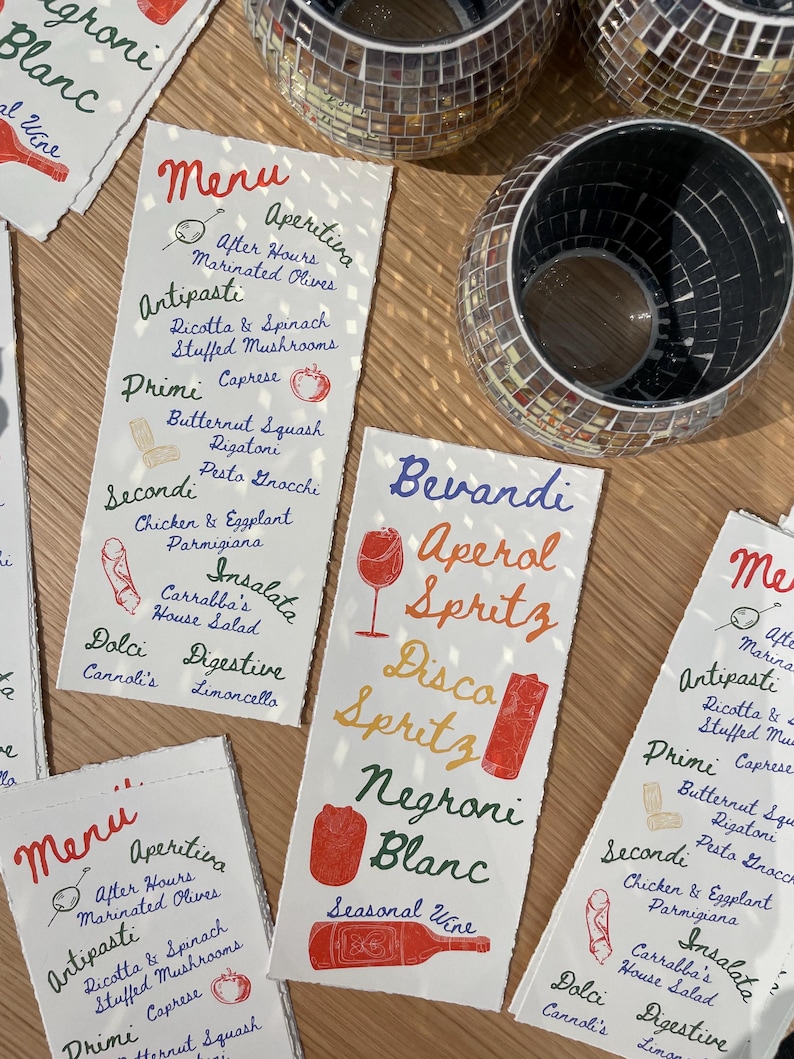 Negroni
Blanc
al Wine
Menu
Aperitiva
After Hours
Marinated Olives
Antipasti
Ricotta & Spinach
Stuffed Mushrooms
Caprese
Primi
Butternut Squash
Rigatoni
Pesto Gnocchi
Secondi
Chicken & Eggplant
Parmigiana
Insalata
Carrabba's
House Salad
Dolci
Cannoli's
Digestive
Limoncello
Bevandi
Aperol
Spritz
Disco
Spritz
Negroni
Blanc
Seasonal Wine
Menu
Aperitiva
After Hours
Marinated Olives
Antipasti
Ricotta & Spinach
Stuffed Mushrooms
Caprese
Primi
Butternut Squash
Men
After
Marina
Antipasti
Ricotta & S
Stuffed Mus
Caprese
Primi
Butternut Squ
Rigatoni
Pesto Gnocc
Secondi
Chicken & Eggplant
Parmigiana
Insalata
Carrabba's
House Salad
Dolci
Cannoli's
Digestive
Limoncello